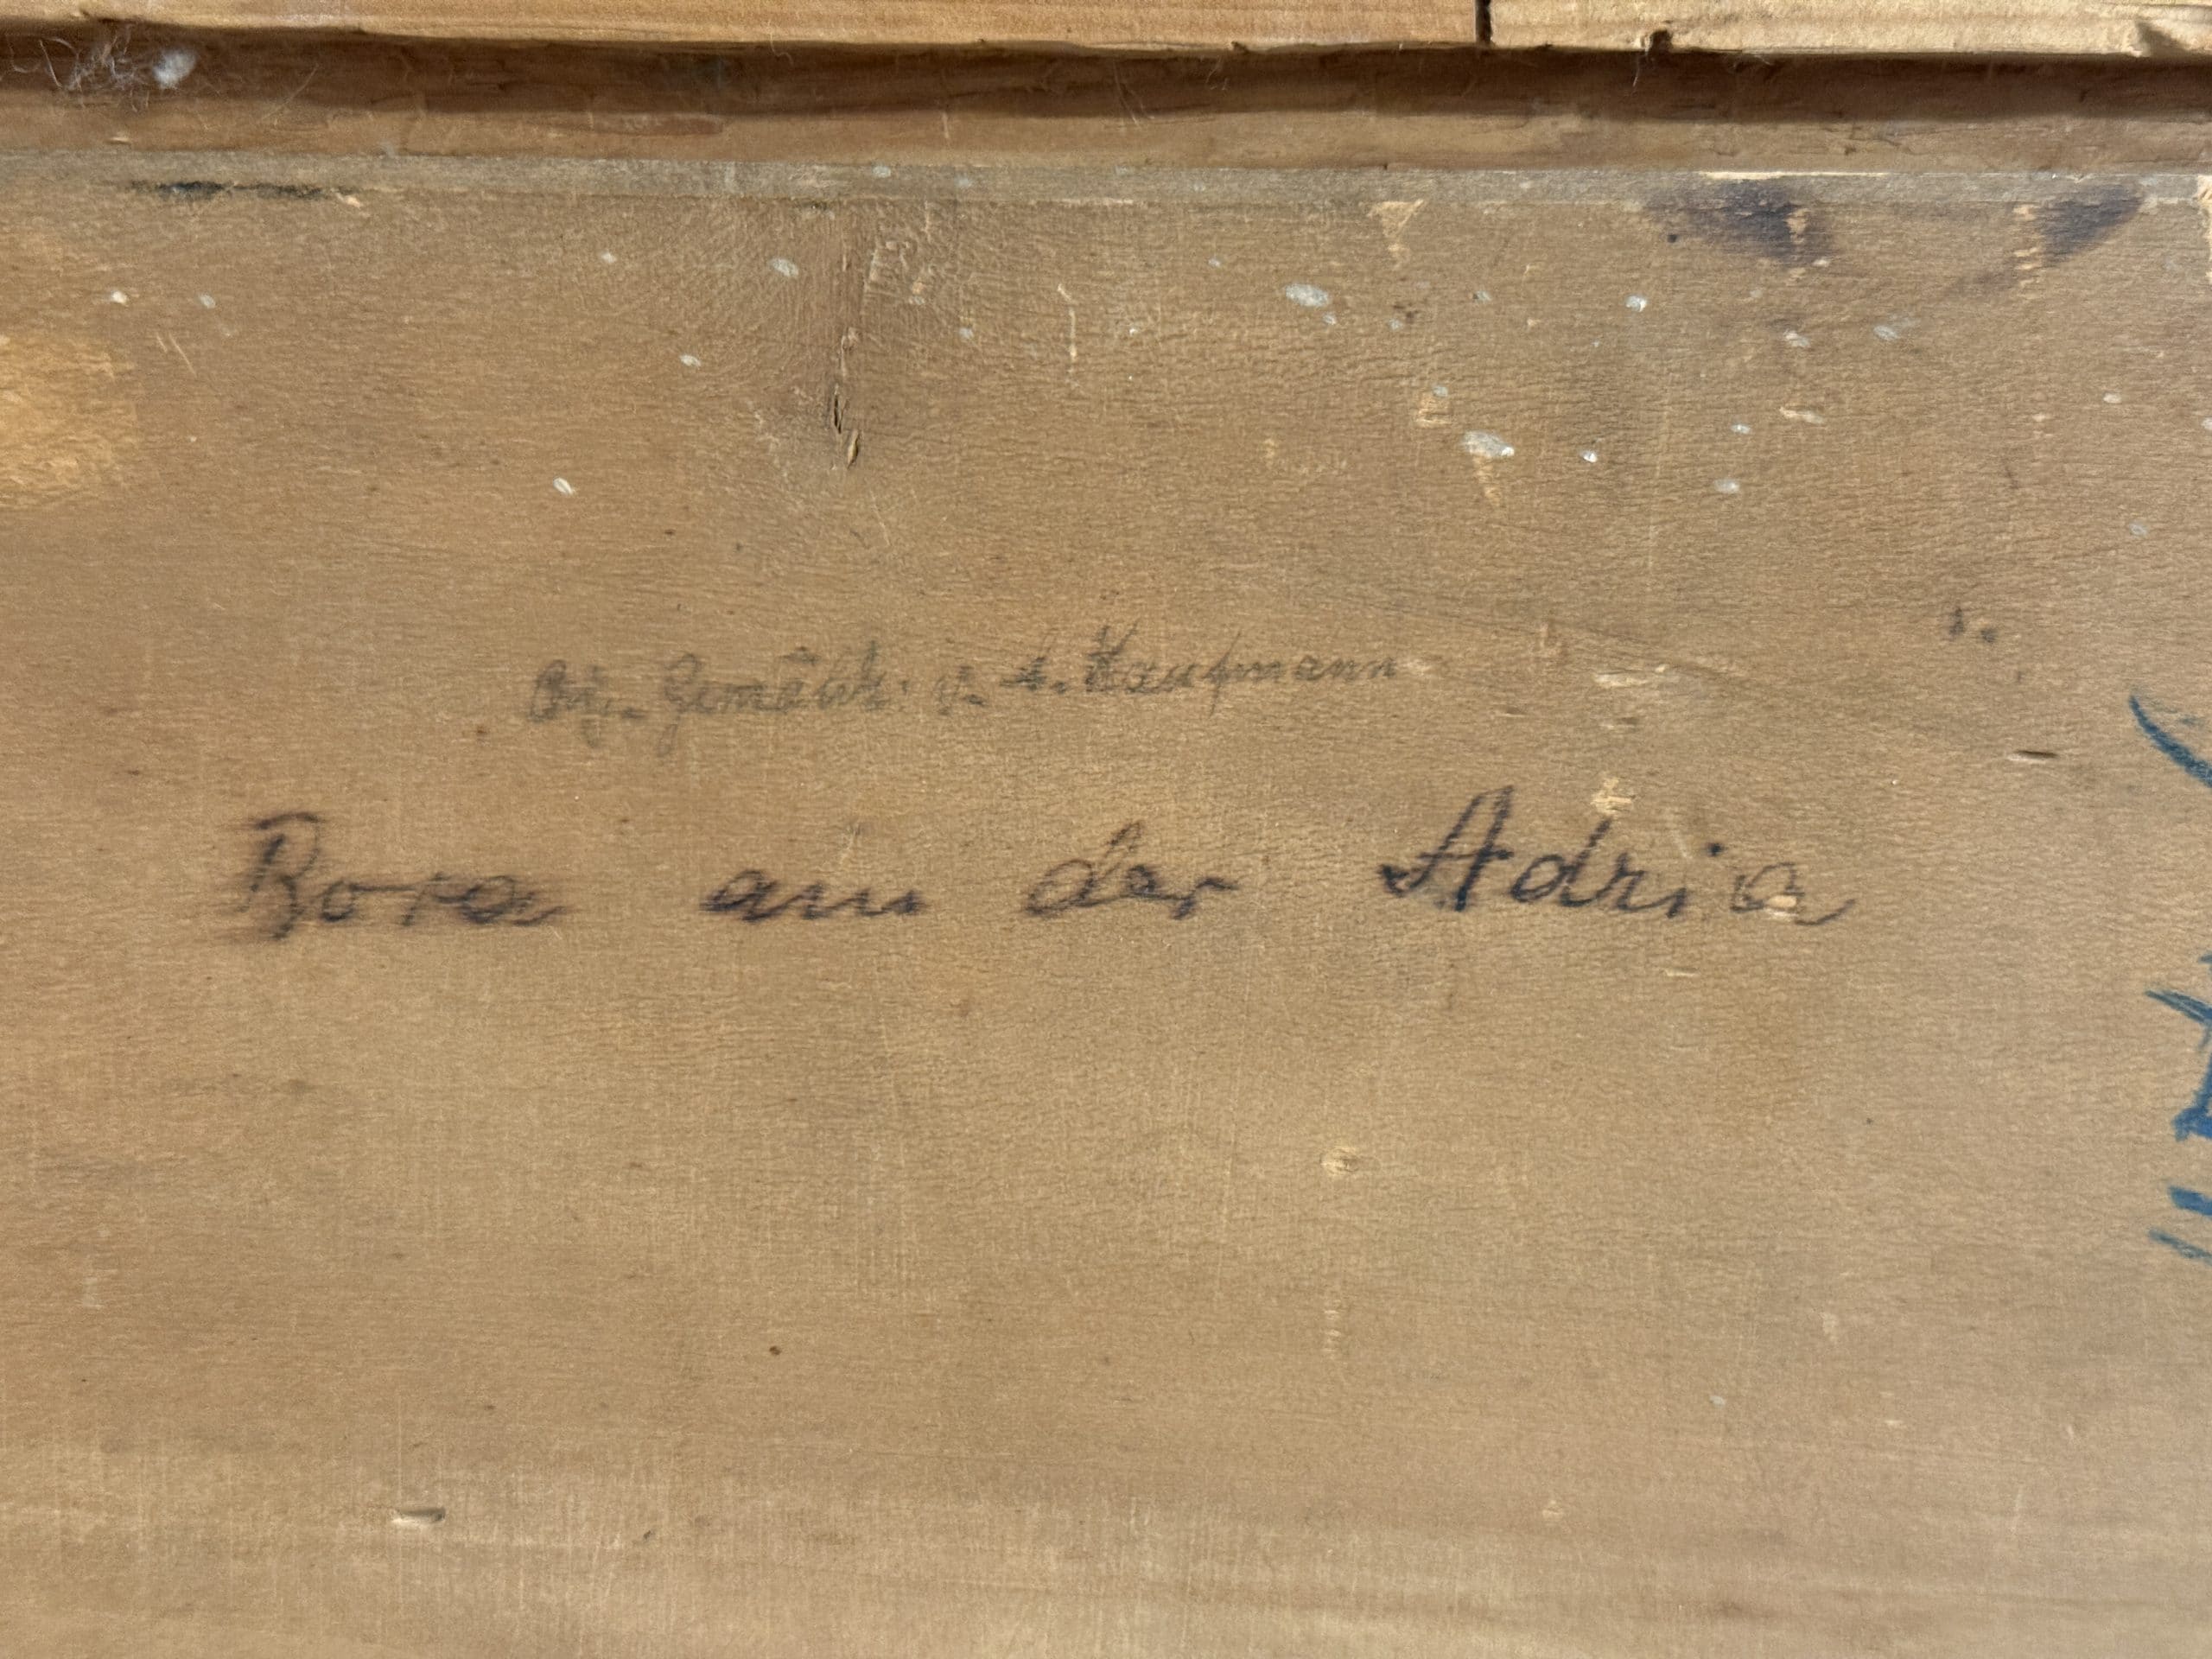 Orig. Gemälde v. A. Kaufmann
Bora an der Adria